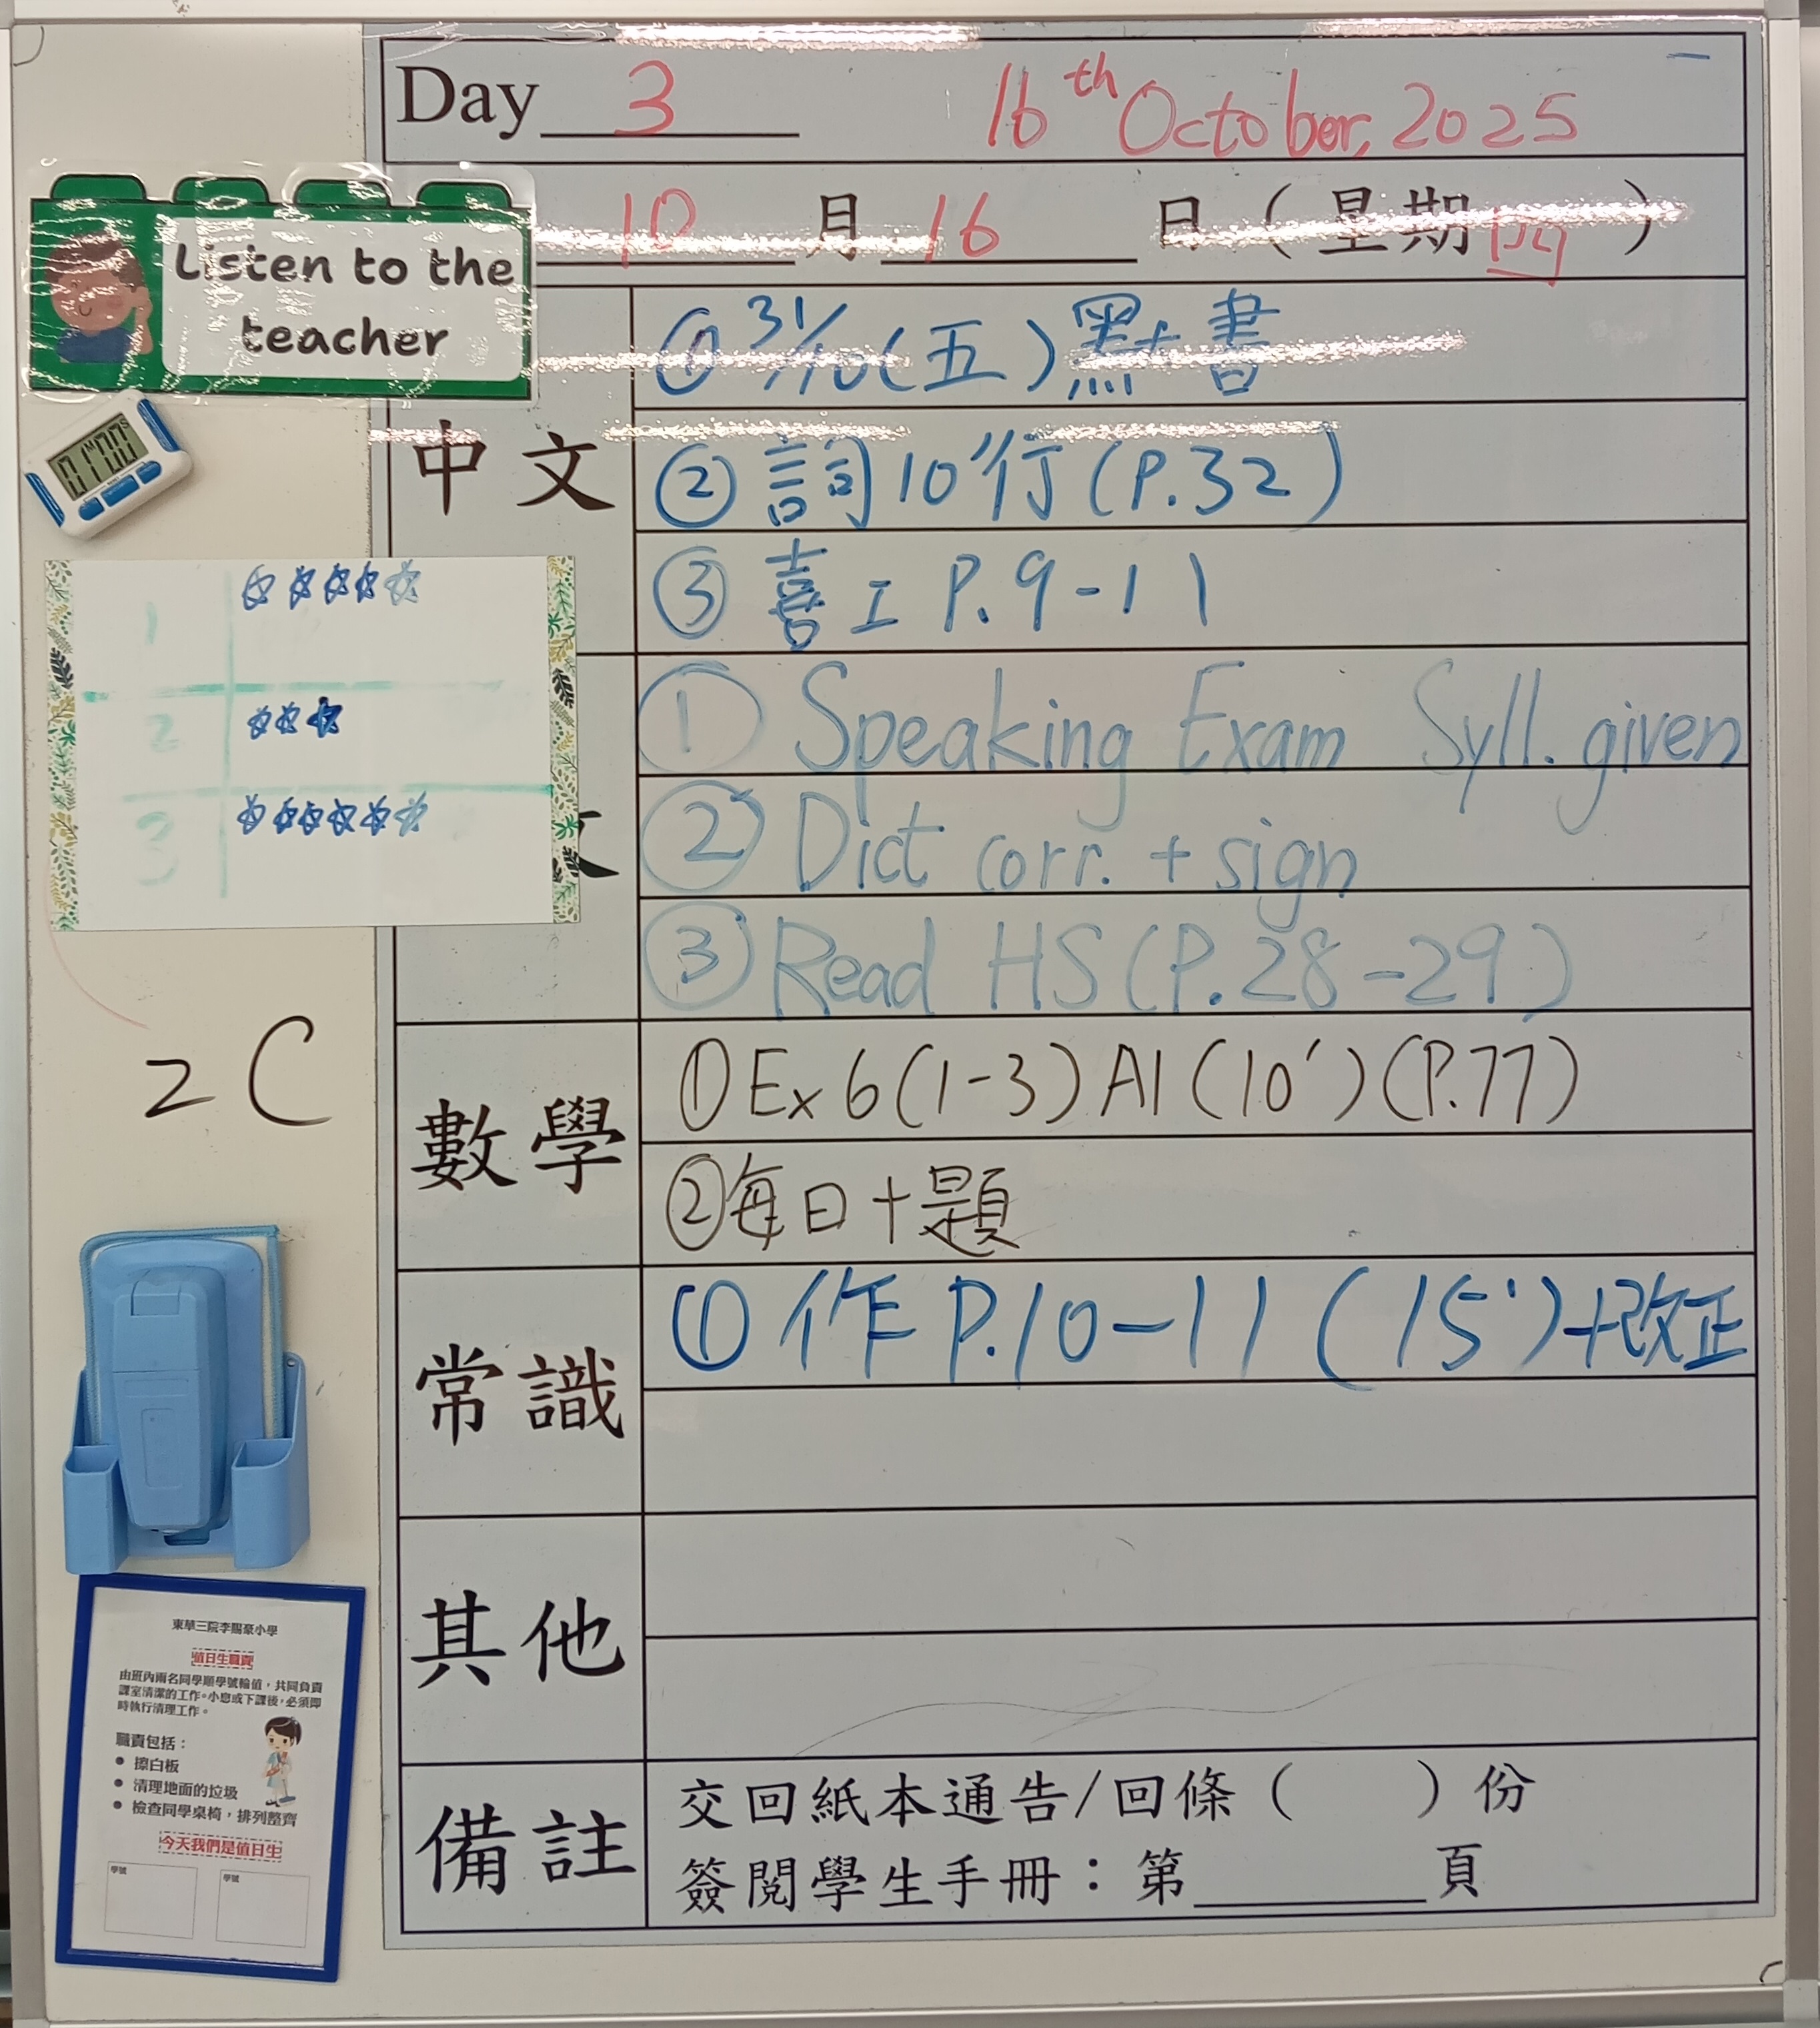 Day 3 16th October, 2025
10 月 16 日 ( 星期四 )
Listen to the
teacher
01M00S
中文
① 31/10(五)默書
② 詞10'行(P.32)
③ 喜工 P.9-11
1
2
3
文
① Speaking Exam Syll. given
② Dict corr. + sign
③ Read HS(P.28-29)
2C
數學
① Ex 6(1-3) A1(10')(P.77)
② 每日十題
常識
① 作 P.10-11 (15')+改正
其他
備註
交回紙本通告/回條( )份
簽閱學生手冊：第______頁
東華三院李賜豪小學
值日生職責
由班內兩名同學順學號輪值，共同負責
課室清潔的工作。小息或下課後，必須即
時執行清理工作。
職責包括：
• 擦白板
• 清理地面的垃圾
• 檢查同學桌椅，排列整齊
今天我們是值日生
學號 學號